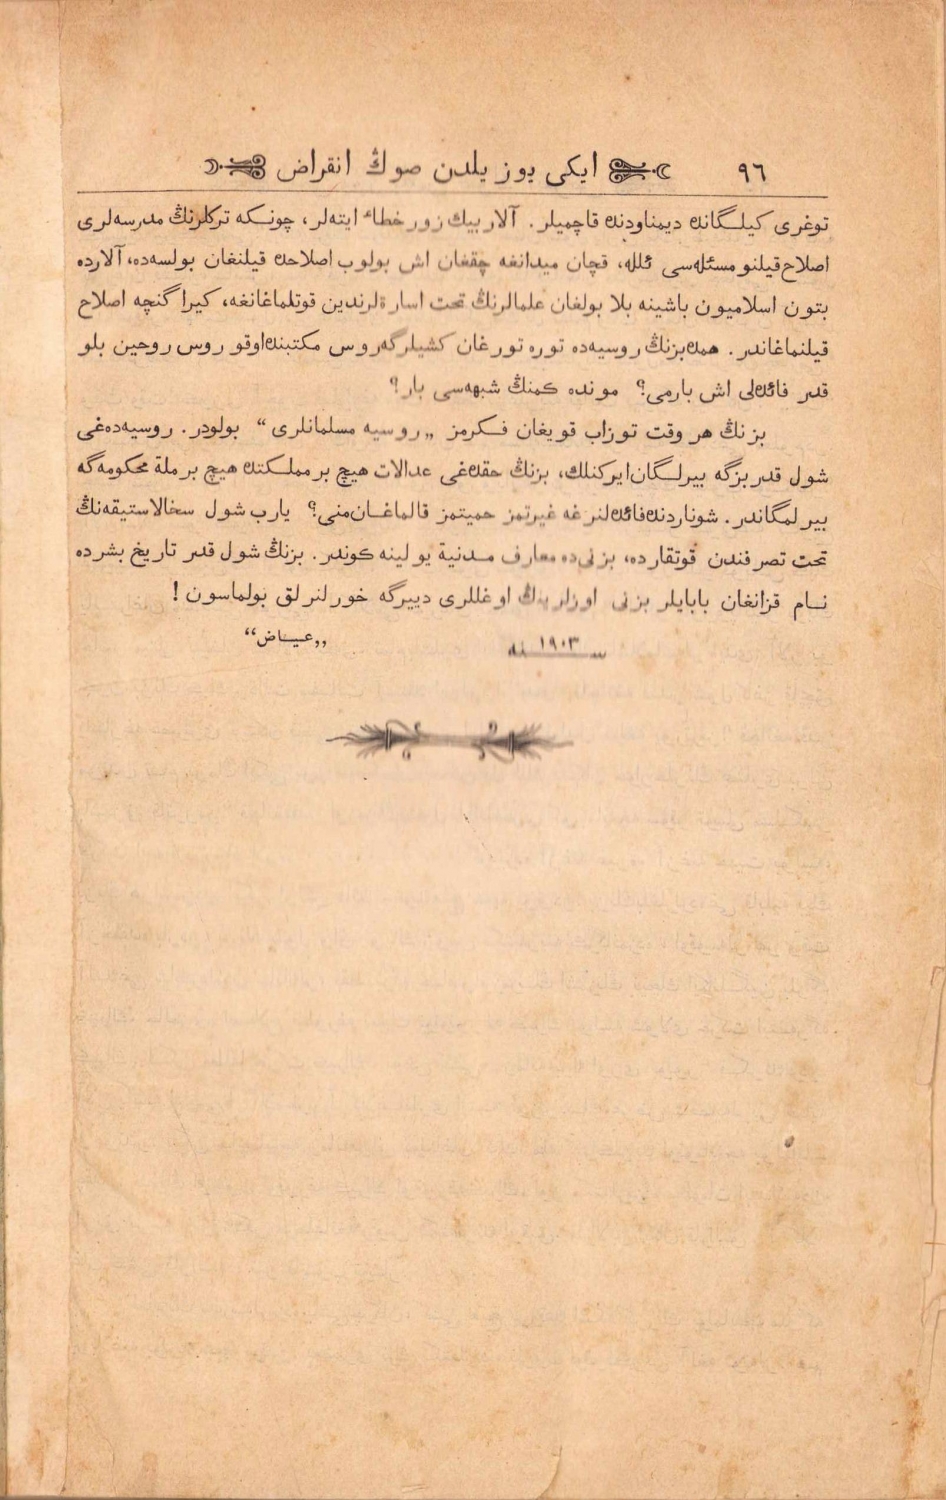 ٩٦ ايكى يوز يلدن صوڭ انقراض
توغرى كيلگانده ديمناودنه قاچميلر. آلار بيك زور خطاء ايته‌لر، چونكه تركلرنڭ مدرسه‌لرى
اصلاح قيلنو مسئله‌سى ئلله، قچان ميدانغه چققغان اش بولوب اصلاحده قيلنغان بولسه‌ده، آلارده
بتون اسلاميون باشينه بلا بولغان علمالرنڭ تحت اسارة‌لرندين قوتلماغانغه، كيراگنچه اصلاح
قيلنماغاندر. همده بزنڭ روسيه‌ده توره تورغان كشيلرگه روس مكتبنده اوقو روس روحين بلو
قدر فائده‌لى اش بارمى؟ مونده كمنڭ شبهه‌سى بار؟
بزنڭ هر وقت توزاب قويغان فكرمز „روسيه مسلمانلرى“ بولودر. روسيه‌ده‌غى
شول قدر بزگه بيرلگان ايركنلك، بزنڭ حقده‌غى عدالات هيچ بر مملكتده هيچ بر ملة محكومه‌گه
بيرلمگاندر. شوناردنه فائده‌لنرغه غيرتمز حميتمز قالماغان‌منى؟ يارب شول سخالاستيقه‌نڭ
تحت تصرفندن قوتقارده، بزنى‌ده معارف مدنية يولينه كوندر. بزنڭ شول قدر تاريخ بشرده
نام قزانغان بابايلر بزنى اوزلرينڭ اوغللرى دييرگه خورلنرلق بولماسون!
سنه ١٩٠٣ „عياض“